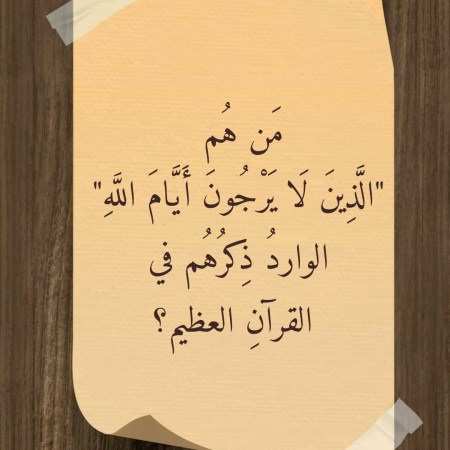 مَن هُم
"الَّذِينَ لَا يَرْجُونَ أَيَّامَ اللَّهِ"
الواردُ ذِكرُهُم في
القرآنِ العظيم؟